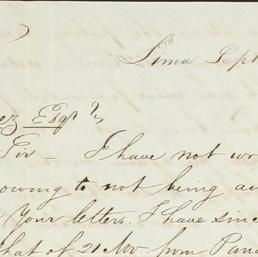 Lima Sept
ez Esqr
Sir - I have not wr
owing to not being aw
Your letters. I have sinc
that of 21 Nov. from Pana